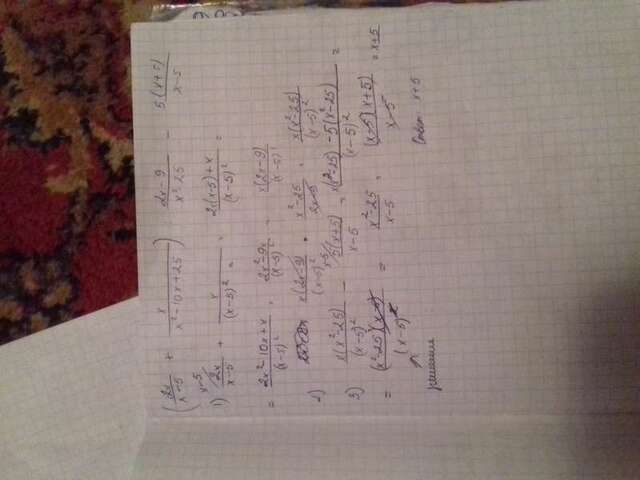 (2x/(x-5) + x/(x²-10x+25)) : (2x-9)/(x²-25) - 5(x+5)/(x-5)
1) 2x/(x-5) + x/(x-5)² = (2x(x-5)+x)/(x-5)² =
= (2x²-10x+x)/(x-5)² = (2x²-9x)/(x-5)² = x(2x-9)/(x-5)²
2) x(2x-9)/(x-5)² · (x²-25)/(2x-9) = x(x²-25)/(x-5)²
3) x(x²-25)/(x-5)² - 5(x+5)/(x-5) = (x(x²-25) - 5(x²-25))/(x-5)² =
= (x²-25)(x-5)/(x-5)² = (x²-25)/(x-5) = (x-5)(x+5)/(x-5) = x+5
решение
Ответ: x+5